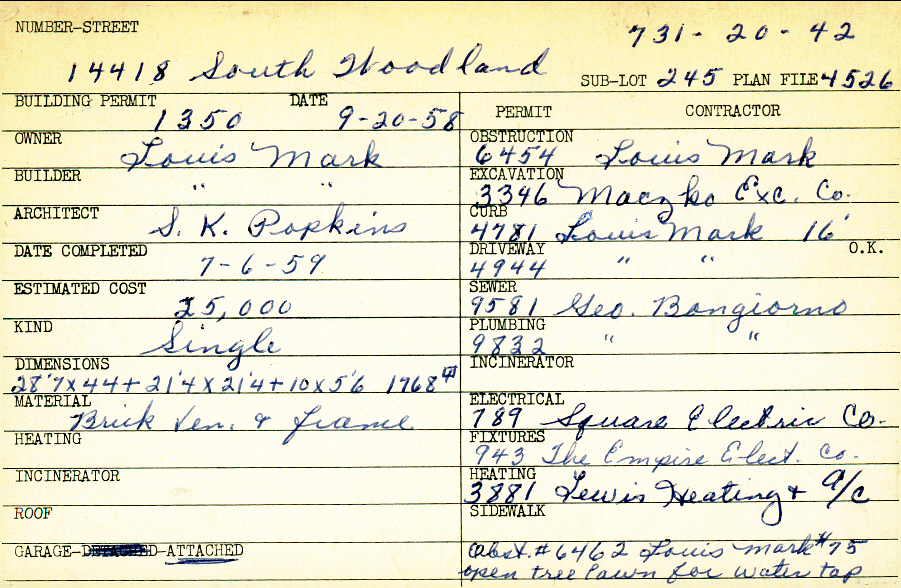 NUMBER-STREET
731-20-42
14418 South Woodland
SUB-LOT 245 PLAN FILE 4526
BUILDING PERMIT DATE
1350 9-20-58
OWNER
Louis Mark
BUILDER
" "
ARCHITECT
S. K. Popkins
DATE COMPLETED
7-6-59
ESTIMATED COST
25,000
KIND
Single
DIMENSIONS
28'7x44+21'4x21'4+10x5'6 1768
MATERIAL
Brick Ven. & frame
HEATING
INCINERATOR
ROOF
GARAGE-DETACHED-ATTACHED
PERMIT CONTRACTOR
OBSTRUCTION
6454 Louis Mark
EXCAVATION
3346 Maczko Exc. Co.
CURB
4781 Louis Mark 16'
DRIVEWAY O.K.
4944 " "
SEWER
9581 Geo. Bongiorno
PLUMBING
9832 " "
INCINERATOR
ELECTRICAL
789 Square Electric Co.
FIXTURES
943 The Empire Elect. Co.
HEATING
3881 Lewis Heating & A/C
SIDEWALK
Obst. #6462 Louis Mark #75
open tree lawn for water tap